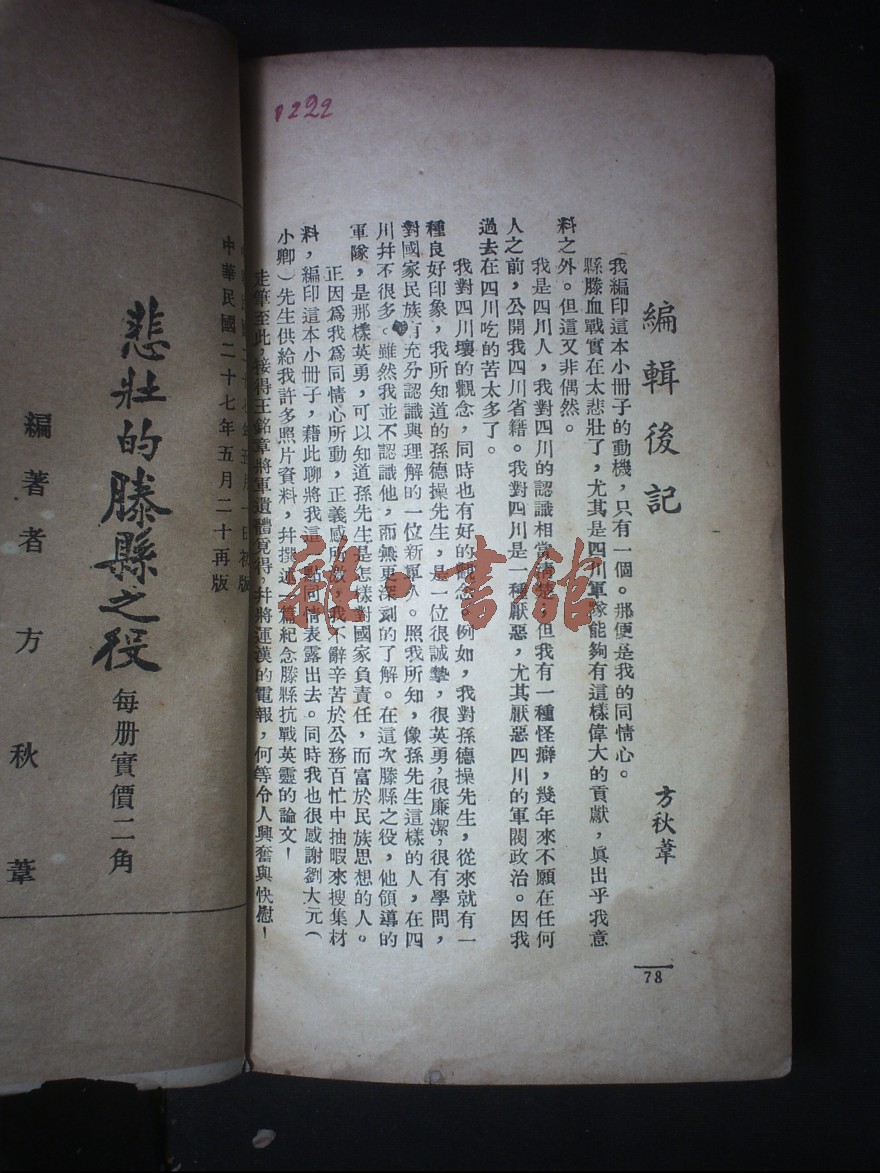 1222
編輯後記
方秋葦
我編印這本小冊子的動機，只有一個。那便是我的同情心。
縣滕血戰實在太悲壯了，尤其是四川軍隊能夠有這樣偉大的貢獻，眞出乎我意
料之外。但這又非偶然。
我是四川人，我對四川的認識相當清楚。但我有一種怪癖，幾年來不願在任何
人之前，公開我四川省籍。我對四川是一種厭惡，尤其厭惡四川的軍閥政治。因我
過去在四川吃的苦太多了。
我對四川壞的觀念，同時也有好的觀念。例如，我對孫德操先生，從來就有一
種良好印象，我所知道的孫德操先生，是一位很誠摯，很英勇，很廉潔，很有學問，
對國家民族有充分認識與理解的一位新軍人。照我所知，像孫先生這樣的人，在四
川幷不很多。雖然我並不認識他，而無更深刻的了解。在這次滕縣之役，他領導的
軍隊，是那樣英勇，可以知道孫先生是怎樣對國家負責任，而富於民族思想的人。
正因爲我爲同情心所動，正義感所激，我不辭辛苦於公務百忙中抽暇來搜集材
料，編印這本小冊子，藉此聊將我這一點同情表露出去。同時我也很感謝劉大元（
小卿）先生供給我許多照片資料，幷撰述一篇紀念滕縣抗戰英靈的論文！
走筆至此，接得王銘章將軍遺體覓得，幷將運漢的電報，何等令人興奮與快慰！
78
雜·書館
中華民國二十七年五月二十再版
悲壯的滕縣之役
每册實價二角
編著者方秋葦